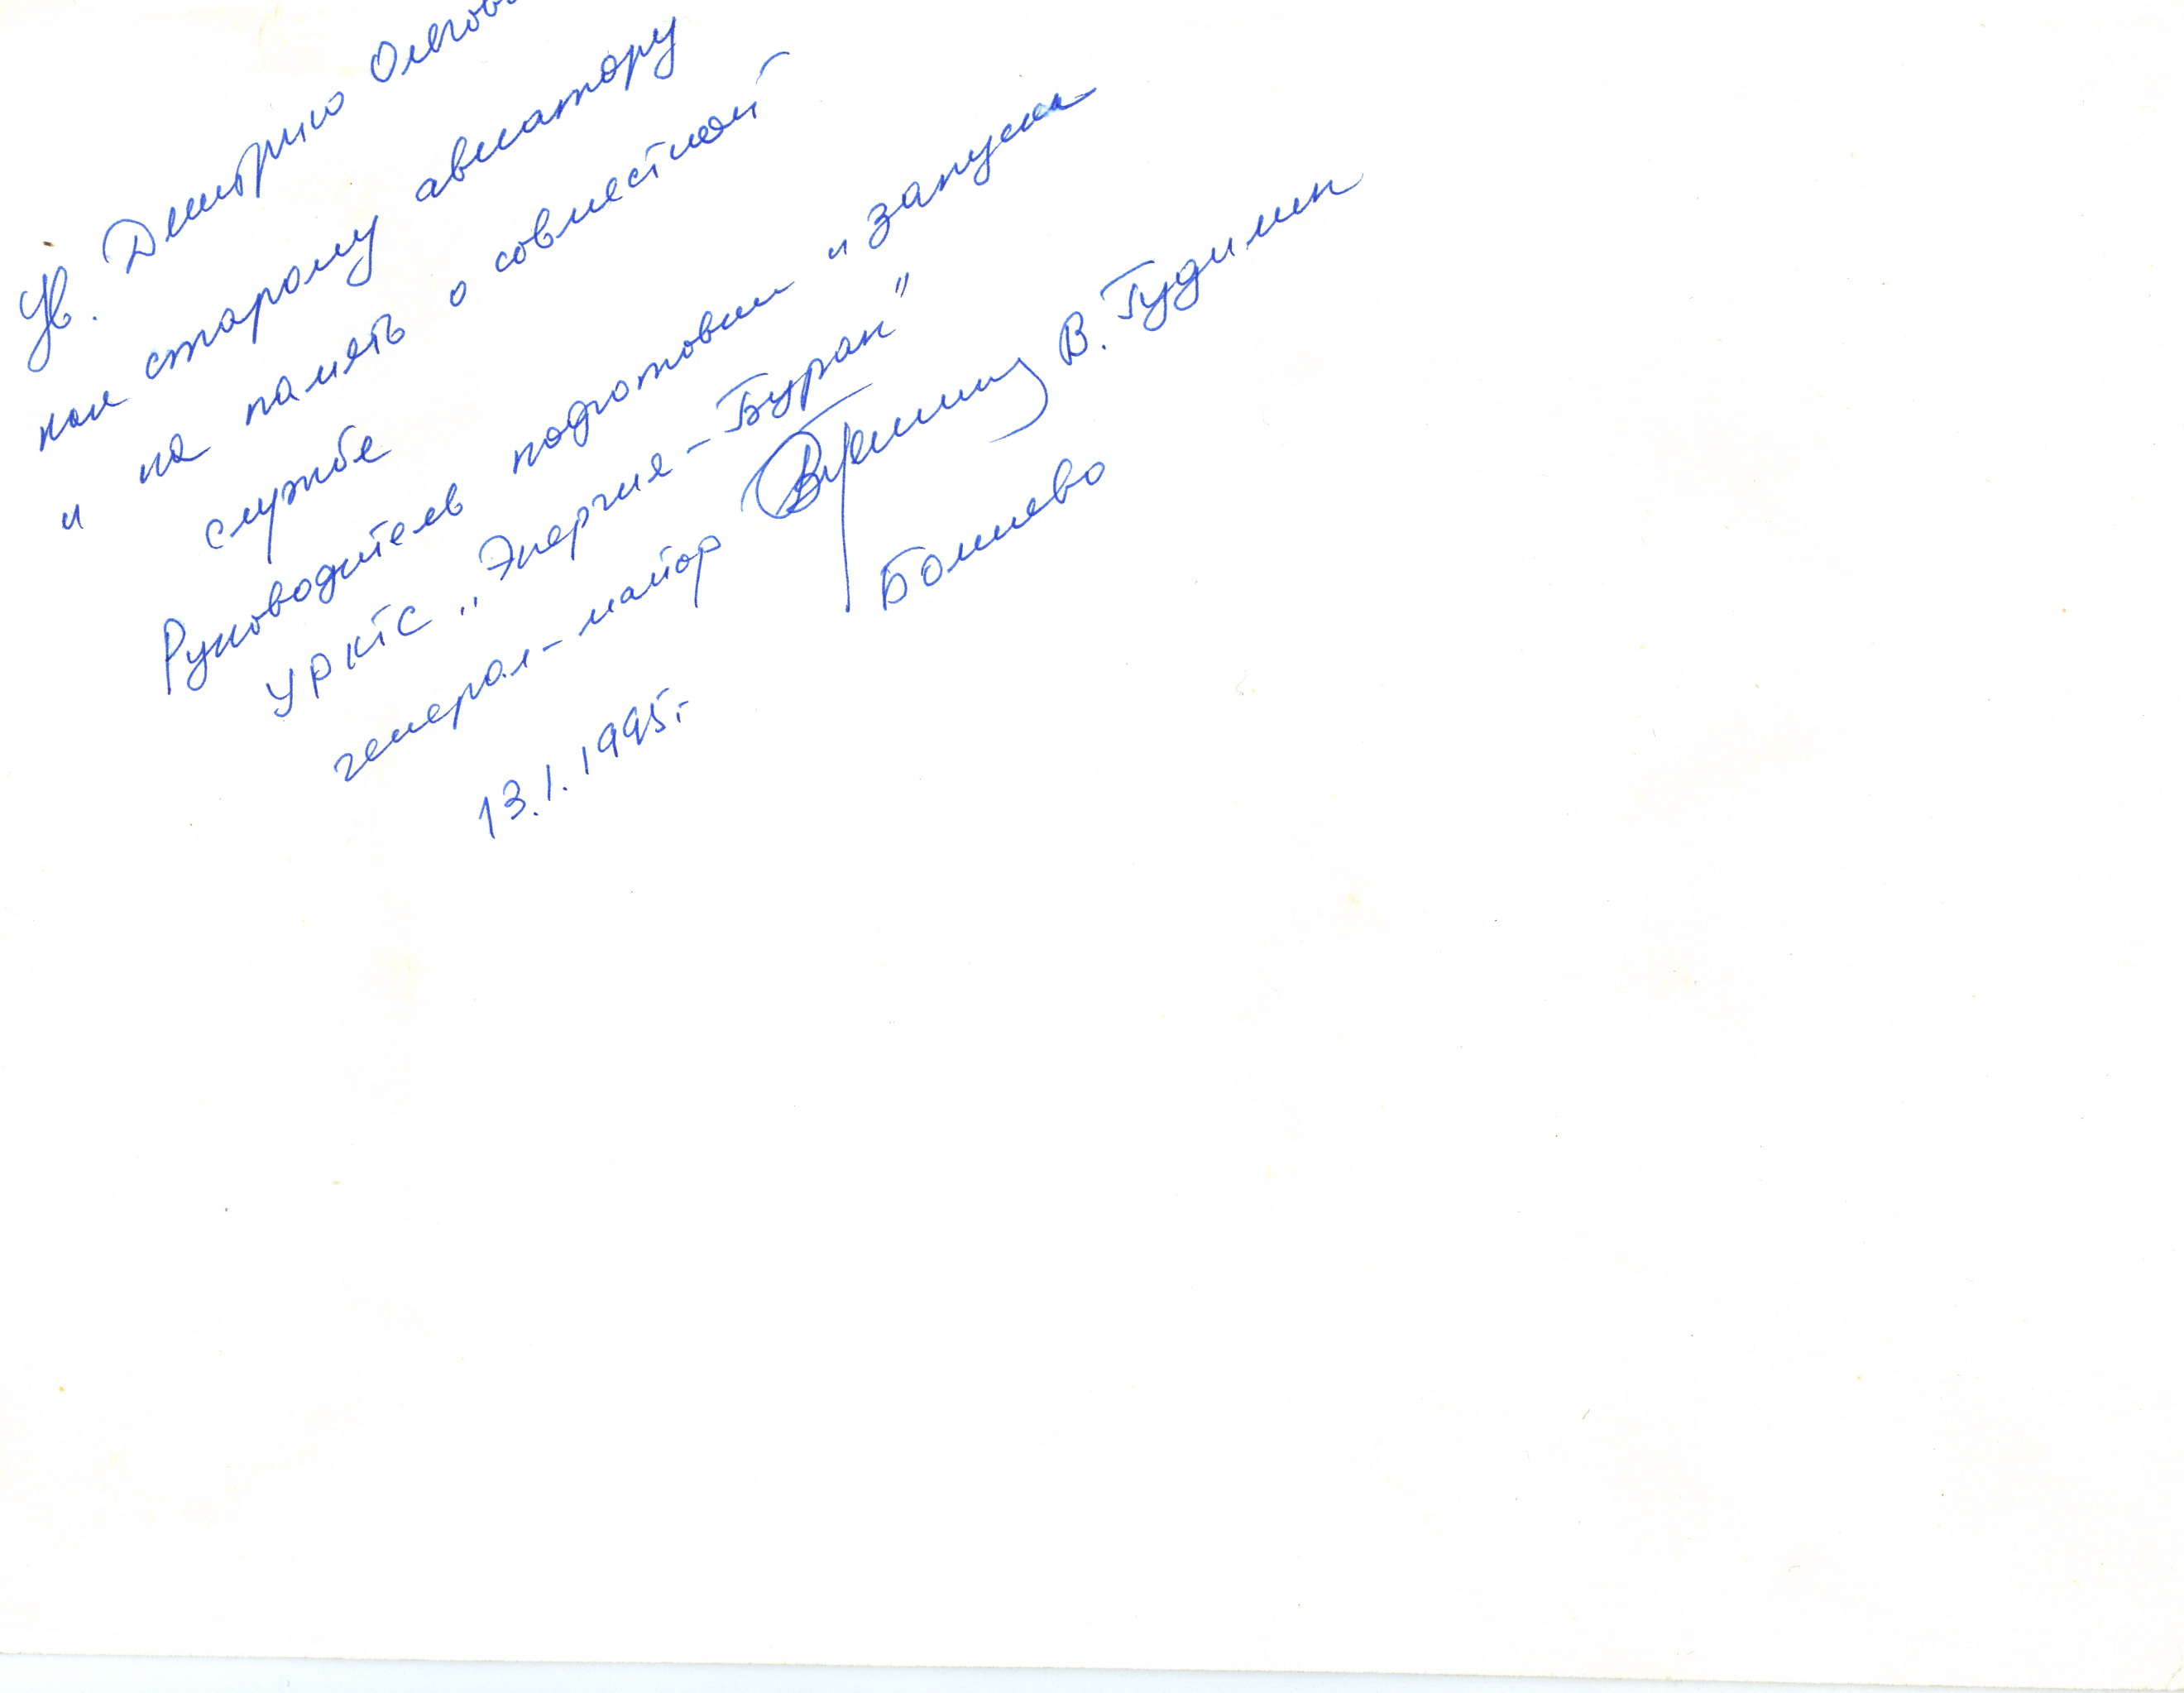 Ув. Дмитрию Олегов
как старому авиатору
и на память о совместной
службе
Руководитель подготовки и запуска
УРКТС "Энергия-Буран"
генерал-майор В. Гудилин
13.1.1995г. Болшево